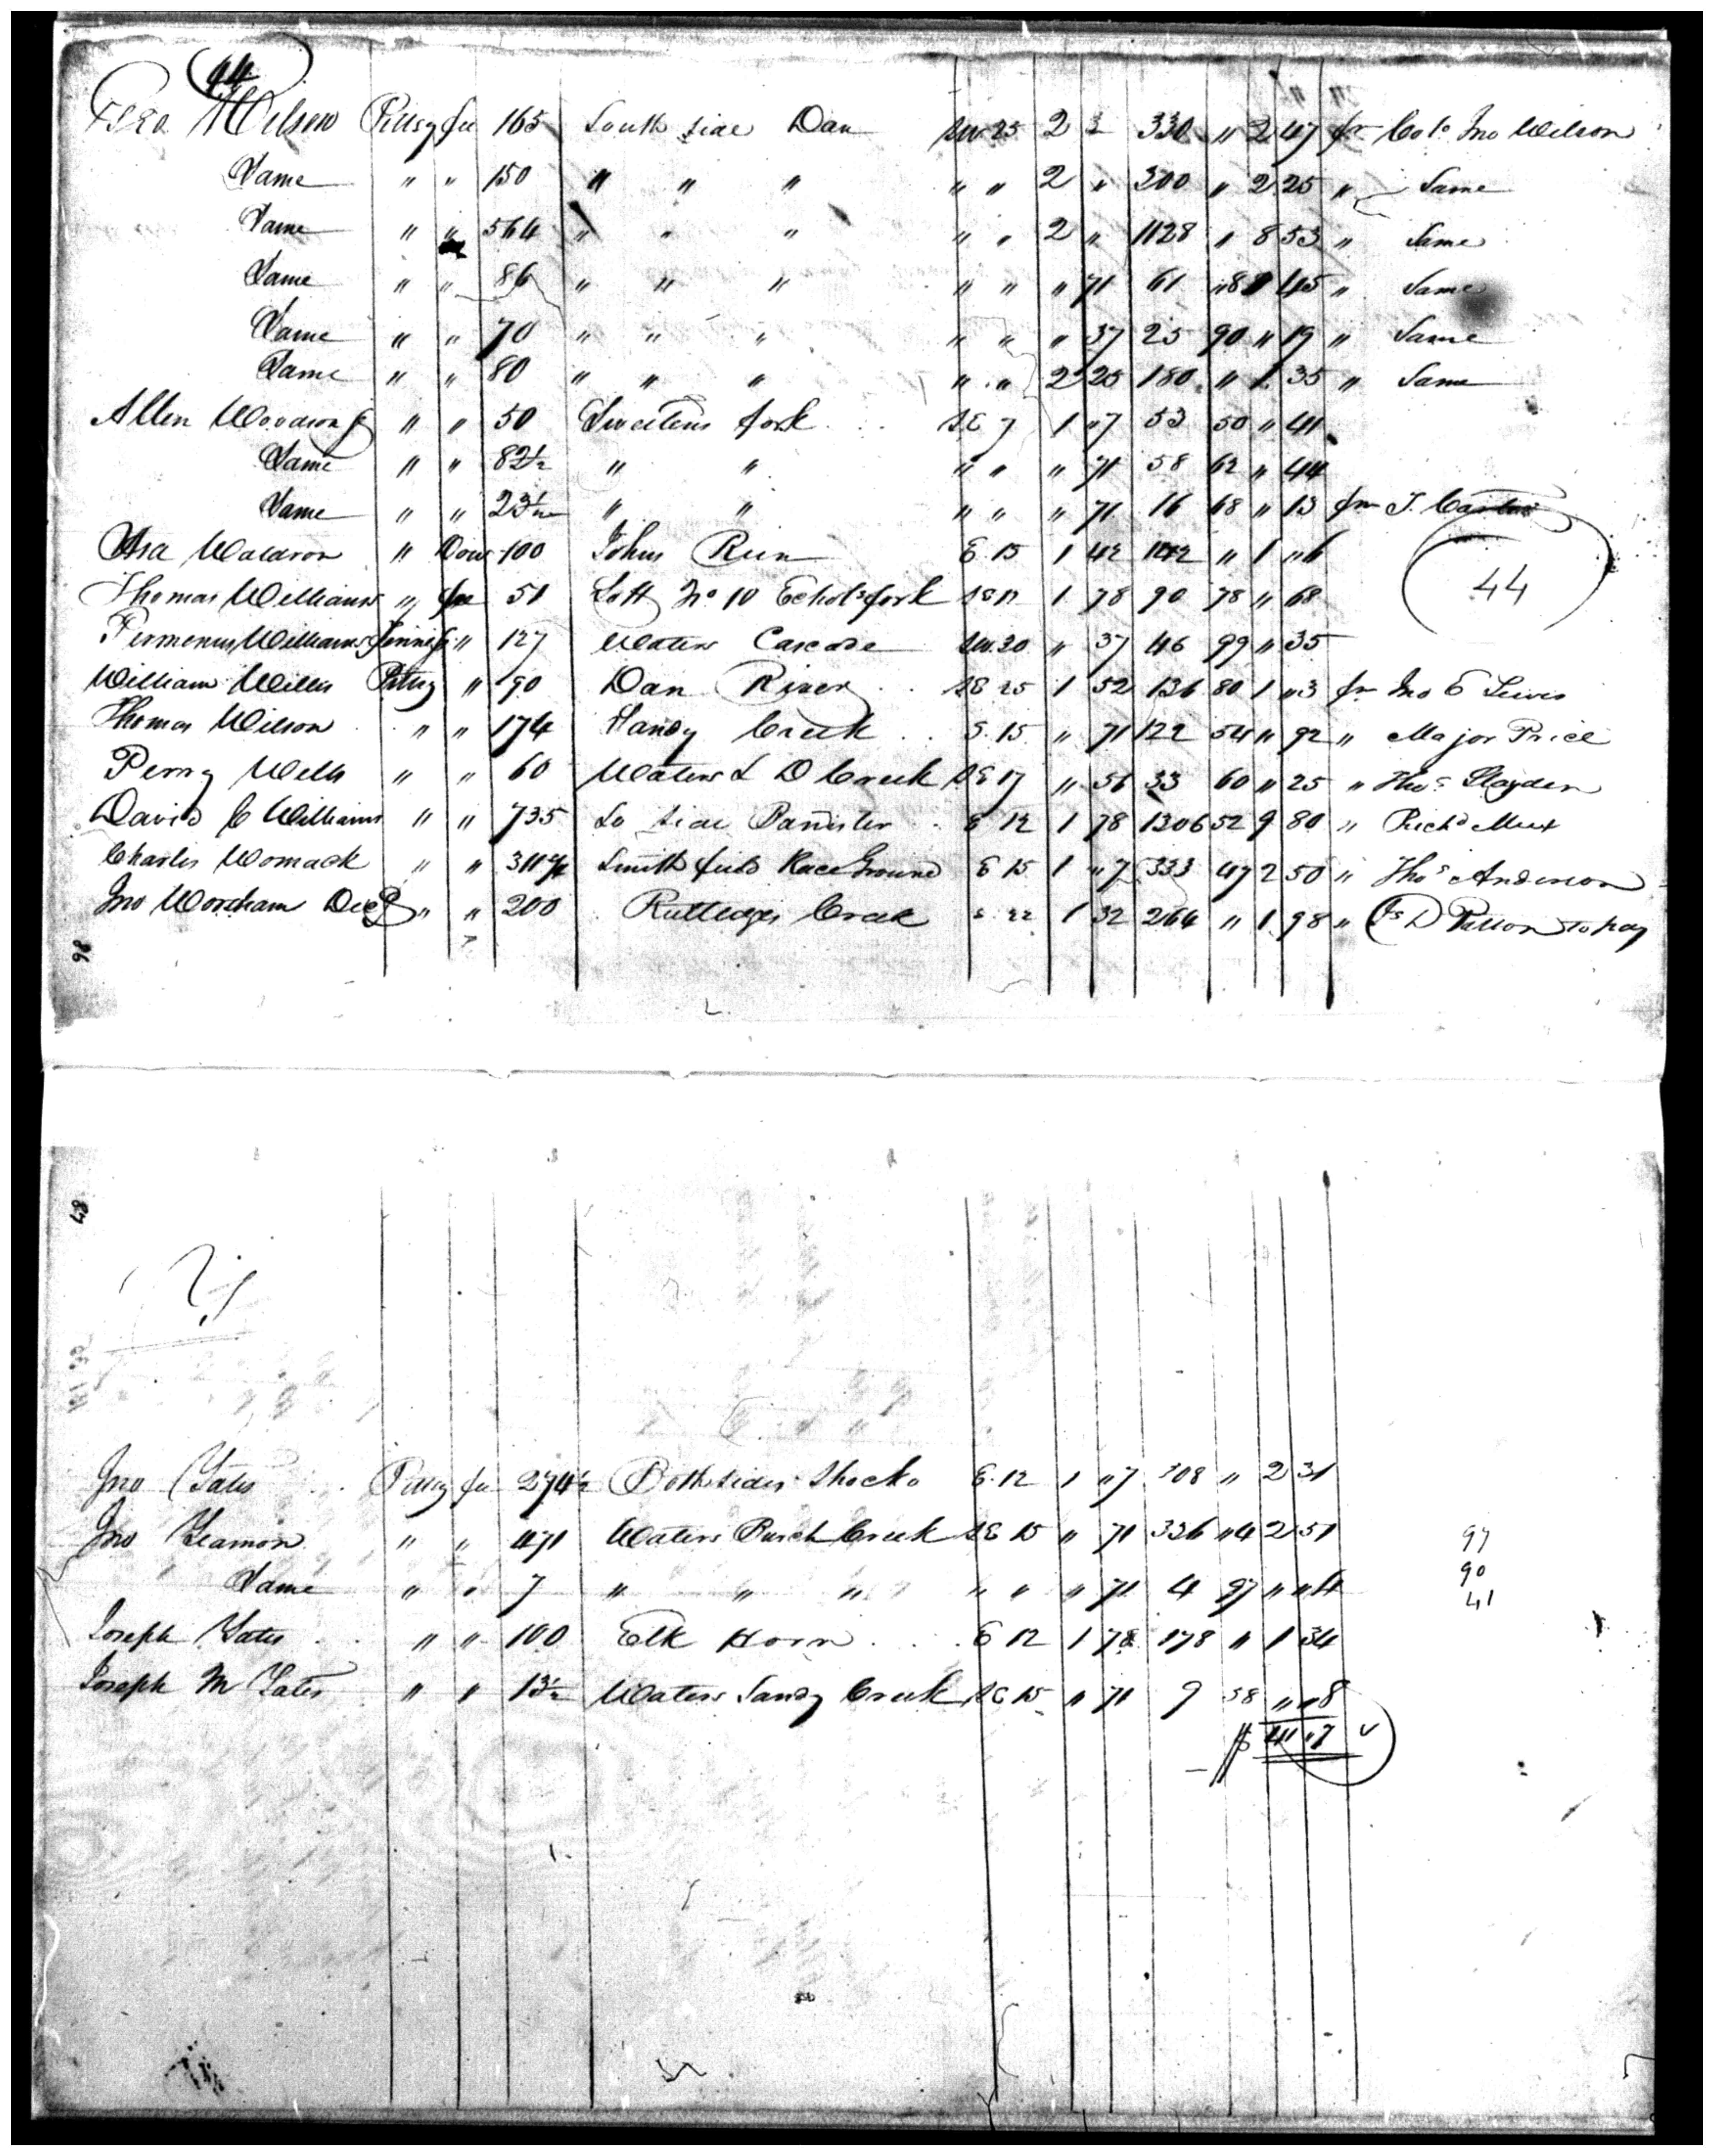 44
Wilson Pittsy fee 165 South side Dan SW. 25 2 330 " 2 47 fr Colo Jno Wilson
Same " " 150 " " " " " 2 " 300 " 2 25 " Same
Same " " 564 " " " " " 2 " 1128 " 8 53 " Same
Same " " 86 " " " " " " 71 61 45 " Same
Same " " 70 " " " " " " 37 25 90 " 19 " Same
Same " " 80 " " " " " 2 25 180 " 1 35 " Same
Allen Woodson " " 50 Sweetens fork SE 7 1 "7 53 50 " 41
Same " " 82½ " " " " " 71 58 62 " 44
Same " " 23½ " " " " " 71 16 68 " 13 fm J.
Asa Waldron " Dow 100 Johns Run E. 15 1 42 142 " 1 "6
44
Thomas Williams " fee 51 Lott No 10 Echols fork 1 78 90 78 " 68
Williams " 127 Waters Cascade SW. 30 " 37 46 99 " 35
William Willis Pittsy " 90 Dan River SE 25 1 52 136 80 1 "3 fr Jno E Lewis
Thomas Wilson " " 174 Sandy Creek S. 15 " 71 122 54 " 92 " Major Price
Perry Wells " " 60 Waters S D Creek SE 17 " 56 33 60 " 25 " Thos Slayden
David C Williams " " 735 So side Bannister E 12 1 78 1306 52 9 80 " Richd
Charles Womack " " Smith field Race Ground E 15 1 "7 333 47 2 50 " Thos Anderson
Jno Worsham Decd " " 200 Rutledges Creek S. 22 1 32 264 " 1 98 " Js D Patton to pay
98
Jno Yates Pittsy fee 274½ Both sides Shocko E. 12 1 "7 308 " 2 31
Jno Yeamon " " 471 Waters Creek SE 15 " 71 336 "4 2 51
97
Same " " 7 " " " " " " 71 4 97 " "4
90
41
Joseph Yates " " 100 Elk Horn E 12 1 78 178 " 1 34
Joseph M Yates " " 13½ Waters Sandy Creek SE 15 " 71 9 58 " "8
$ 41 "7